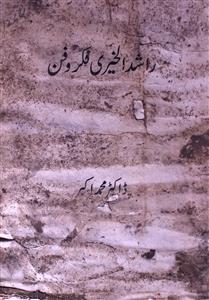 راشد الخیری فکر و فن
ڈاکٹر محمد اکبر